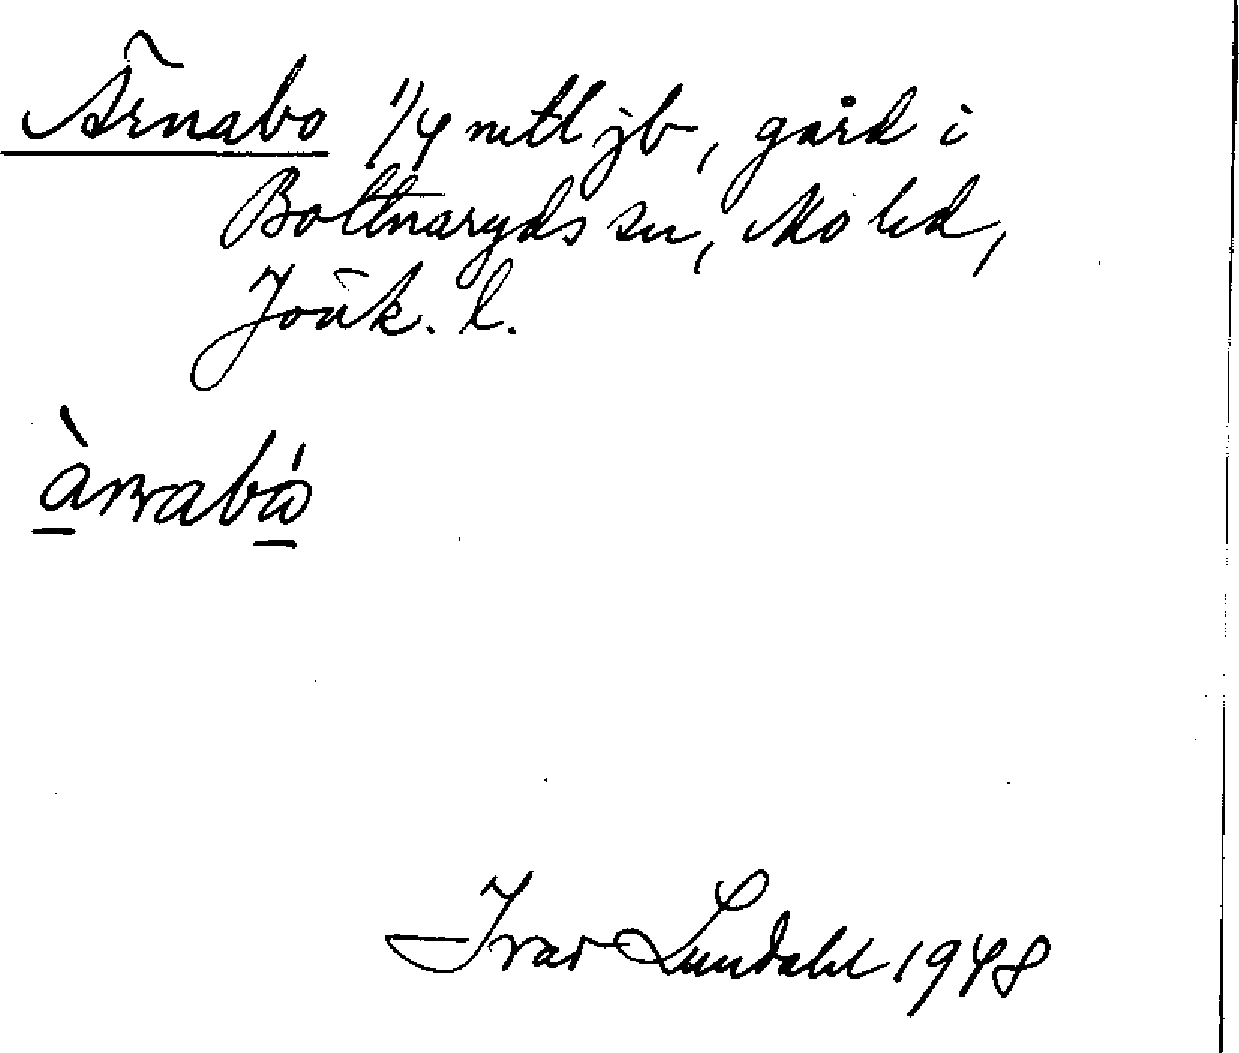 Ärnabo 1/4 mtl jb, gård i
Bottnaryds sn, Mo hd,
Jönk. l.
Ivar Lundahl 1948